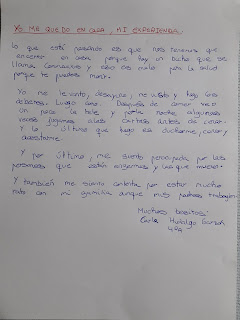 YO ME QUEDO EN CASA, MI EXPERIENCIA.
Lo que está pasando es que nos tenemos que
encerrar en casa porque hay un bicho que se
llama Coronavirus y eso es malo para la salud
porque te puedes morir.
Yo me levanto, desayuno, me visto y hago los
deberes. Luego como. Después de comer veo
un poco la tele y por la noche algunas
veces jugamos a las cartas antes de cenar.
Y lo último que hago es ducharme, cenar y
acostarme.
Y por último, me siento preocupada por las
personas que están enfermas y las que mueren.
Y también me siento contenta por estar mucho
rato con mi familia aunque mis padres trabajen.
Muchos besitos:
Carla Hidalgo